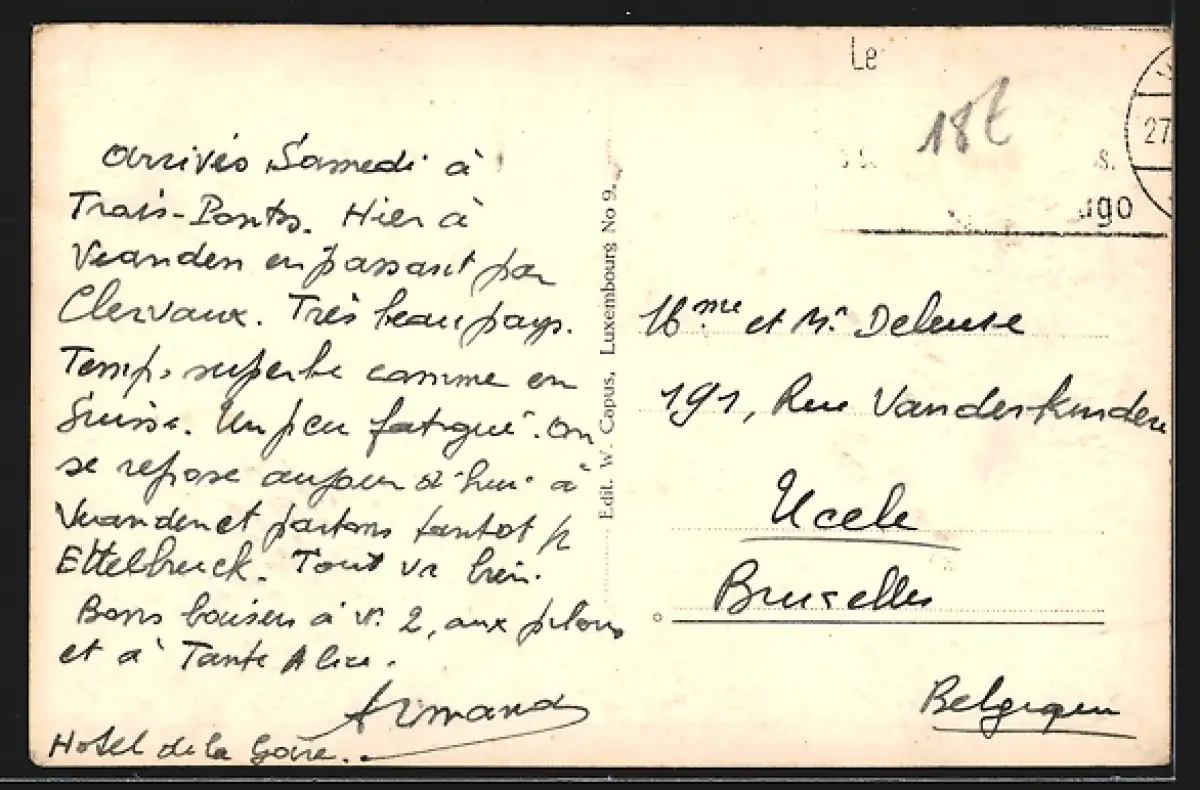 Arrivés Samedi à
Trois-Ponts. Hier à
Vianden en passant par
Clervaux. Très beau pays.
Temps superbe comme en
Suisse. Un peu fatigué. On
se repose aujourd'hui à
Vianden et partons tantot pr
Ettelbruck. Tout va bien.
Bons baisers à v. 2, aux
et à Tante Alice.
Armand
Hotel de la Gare.
Edit. W. Capus, Luxembourg No 9.
Le
18t
s.
ugo
27
Mme et Mr Deleuse
191, Rue Vanderkindere
Uccle
Bruxelles
Belgique